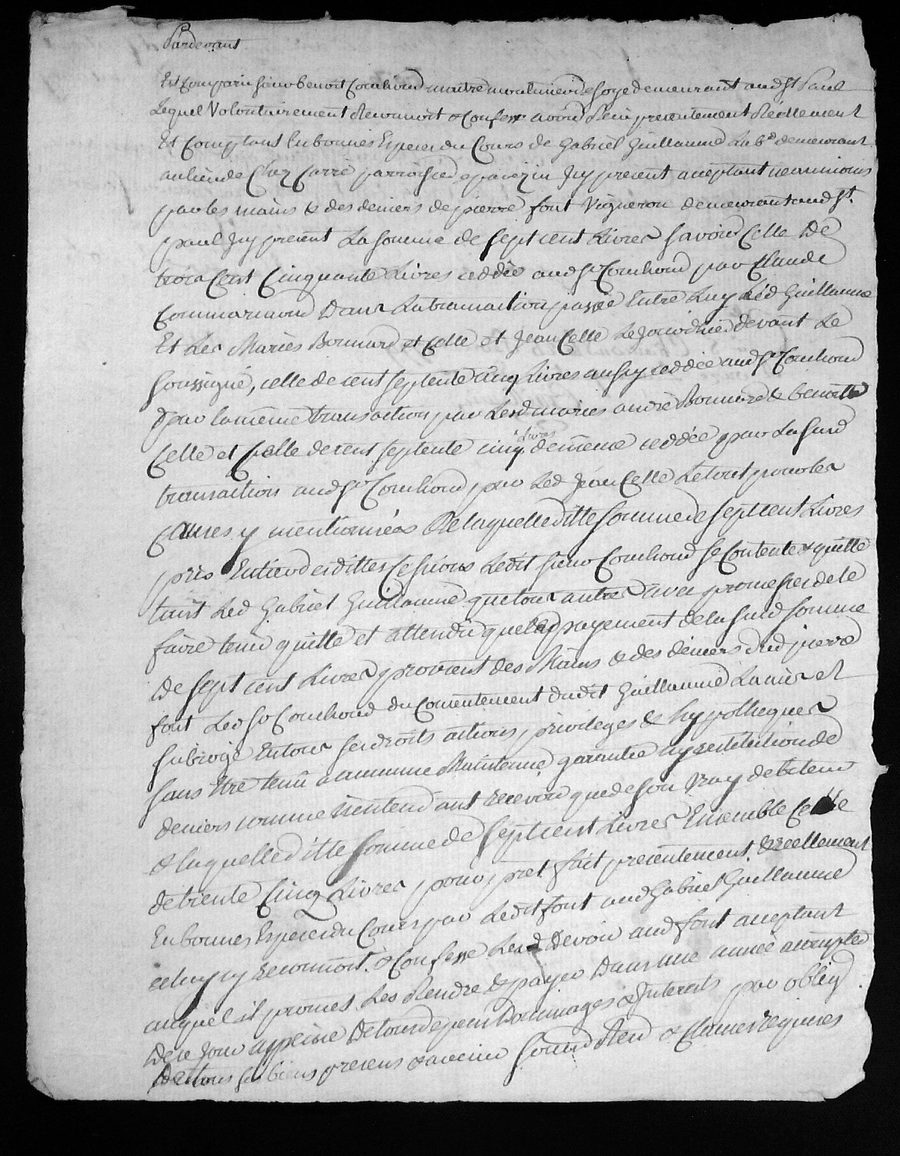 Pardevant
Est comparu sieur benoit Couchoud maitre moulinier de soye demeurant aud St. Paul
Lequel Volontairement Reconnoit & Confesse avoir Receu presentement Reellement
Et Comptant En bonnes Especes du Cours de Gabriel Guillaume Lab.r demeurant
au lieu de Chez Carré parroisse de pavezin Icy present acceptant neanmoins
par les mains & des deniers de pierre font Vigneron demeurant aud St.
paul Icy present La somme de sept cent Livres savoir Celle De
trois Cent Cinquante Livres ceddée aud Sr Couchoud par Claude
Dans La transaction passée Entre Luy Led Guillaume
Et Les Mariés Bonnard et Celle et Jean Celle Le devant Le
soussigné, celle de cent septente cinq Livres aussy ceddée aud Sr Couchoud
par la même transaction par Lesd mariés andré Bonnard & benoitte
Celle et Celle de cent septente cinq Livres de même ceddée par La susd
transaction aud Sr Couchoud par Led Jean Celle Le tout pour les
Causes y mentionnées De laquelle ditte somme de sept cent Livres
prix Entier desdittes Cessions Ledit sieur Couchoud se Contente & quitte
tant Led Gabriel Guillaume que tous autres avec promesse de le
faire tenir quitte et attendu que Led payement de la susd somme
De sept cent Livres provient des Mains & des deniers dud pierre
font Led Sr Couchoud du Consentement dudit Guillaume La mis et
subrogé En tous ses droits actions, privileges & hypotheques
sans Etre tenu a aucune Maintenue garantie ny restitution de
deniers comme n'entendant recevoir que de son Vray debiteur
& laquelle ditte somme de sept cent Livres Ensemble Celle
de trente Cinq Livres pour pret fait presentement & reellement
En bonnes Especes du Cours par Ledit font aud Gabriel Guillaume
celuy cy Reconnoit & Confesse Les Devoir aud font acceptant
auquel il promet Les Rendre & payer Dans une année a compter
De ce Jour a peine De tous depens Dommages & Interets par oblig
De tous ses biens presens & avenir soum Ren & Clauses requises